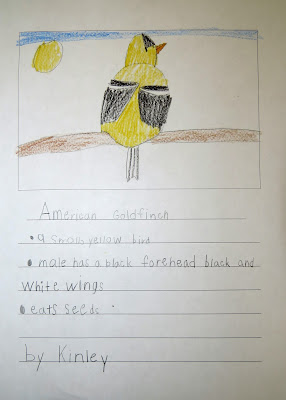 American Goldfinch
• a small yellow bird
• male has a black forehead black and
white wings
• eats seeds
by Kinley